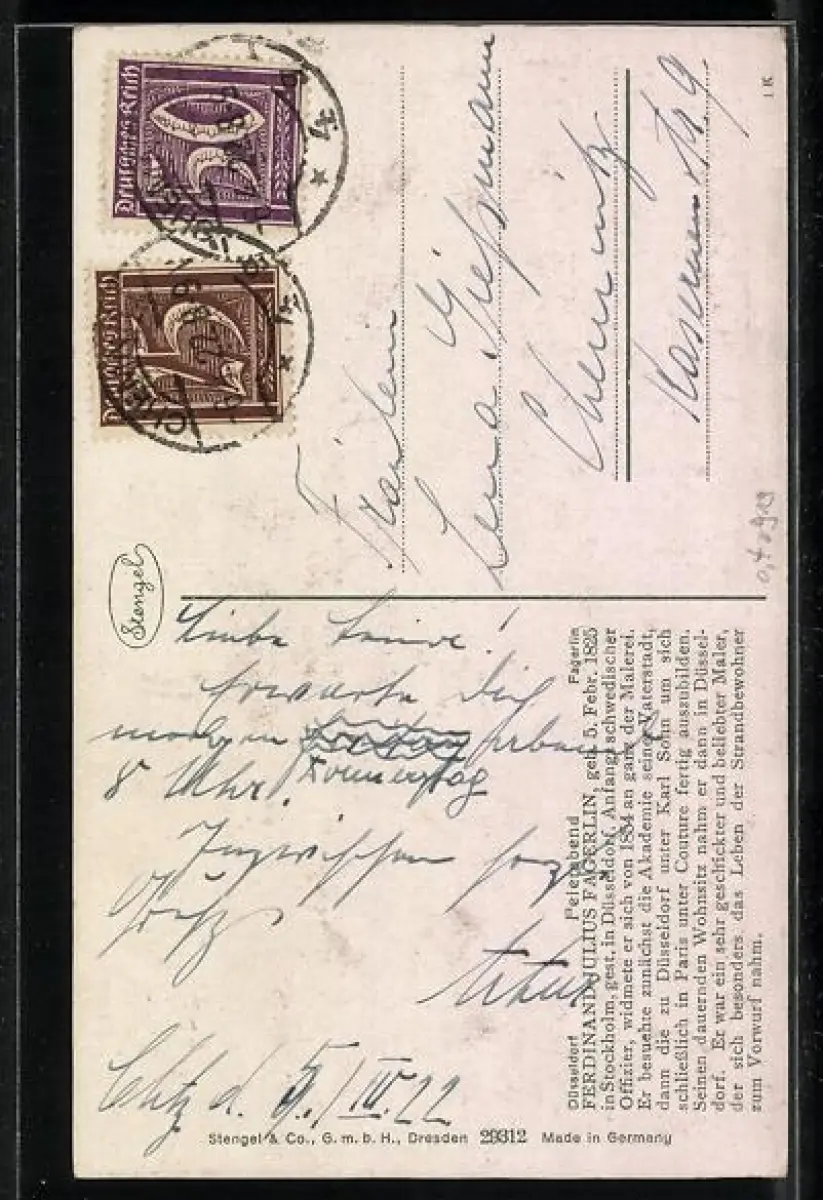 Deutsches Reich
Deutsches Reich
75
Fräulein
Lena
Chemnitz
Kasernenstr 9
1 K
Stengel
Liebe
Erwarte Dich
morgen
8 Uhr. Donnerstag
Inzwischen
Chtz d. 5./IV. 22
Düsseldorf Feierabend Fagerlin
FERDINAND JULIUS FAGERLIN, geb. 5. Febr. 1825
in Stockholm, gest. in Düsseldorf. Anfangs schwedischer
Offizier, widmete er sich von 1854 an ganz der Malerei.
Er besuchte zunächst die Akademie seiner Vaterstadt,
dann die zu Düsseldorf unter Karl Sohn um sich
schließlich in Paris unter Couture fertig auszubilden.
Seinen dauernden Wohnsitz nahm er dann in Düssel-
dorf. Er war ein sehr geschickter und beliebter Maler,
der sich besonders das Leben der Strandbewohner
zum Vorwurf nahm.
Stengel & Co., G. m. b. H., Dresden 29312 Made in Germany